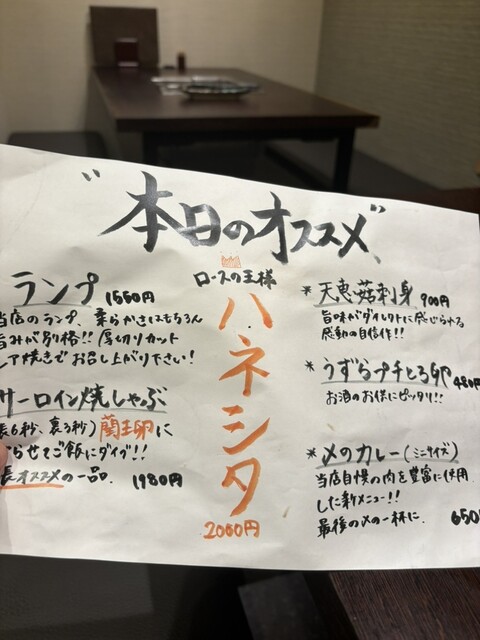 "本日のオススメ"
ランプ 1550円
当店のランプ、柔らかさはもちろん
旨みが別格!! 厚切りカット
レア焼きでお召し上がり下さい!
サーロイン焼しゃぶ
表6秒、裏3秒) 蘭王卵に
らせてご飯にダイブ!!
長オススメの一品. 1980円
ロースの王様
ハネシタ
2000円
* 天恵菇刺身 900円
旨味がダイレクトに感じられる
感動の自信作!!
* うずらプチとろ卵 480円
お酒のお供にピッタリ!!
* 〆のカレー(ミニサイズ)
当店自慢の肉を豊富に使用
した新メニュー!!
最後の〆の一杯に. 650